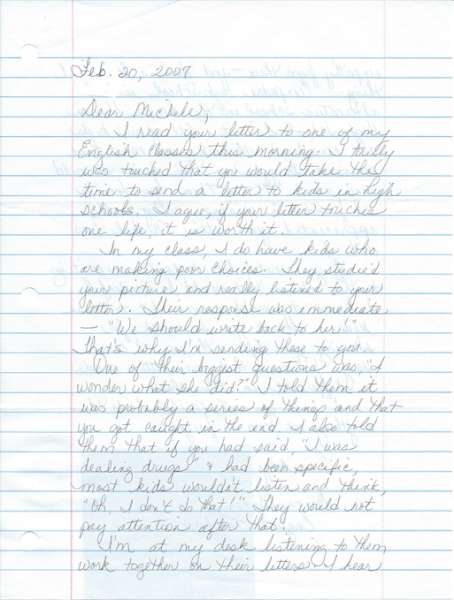 Feb. 20, 2007
Dear Michele,
I read your letter to one of my
English classes this morning. I truly
was touched that you would take the
time to send a letter to kids in high
schools. I agree, if your letter touches
one life, it is worth it.
In my class, I do have kids who
are making poor choices. They studied
your picture and really listened to your
letter. Their response was immediate
— "We should write back to her!"
That's why I'm sending these to you.
One of their biggest questions was, "I
wonder what she did?" I told them it
was probably a series of things and that
you got caught in the end. I also told
them that if you had said, "I was
dealing drugs" & had been specific,
most kids wouldn't listen and think,
"Oh, I don't do that!" They would not
pay attention after that.
I'm at my desk listening to them
work together on their letters. I hear